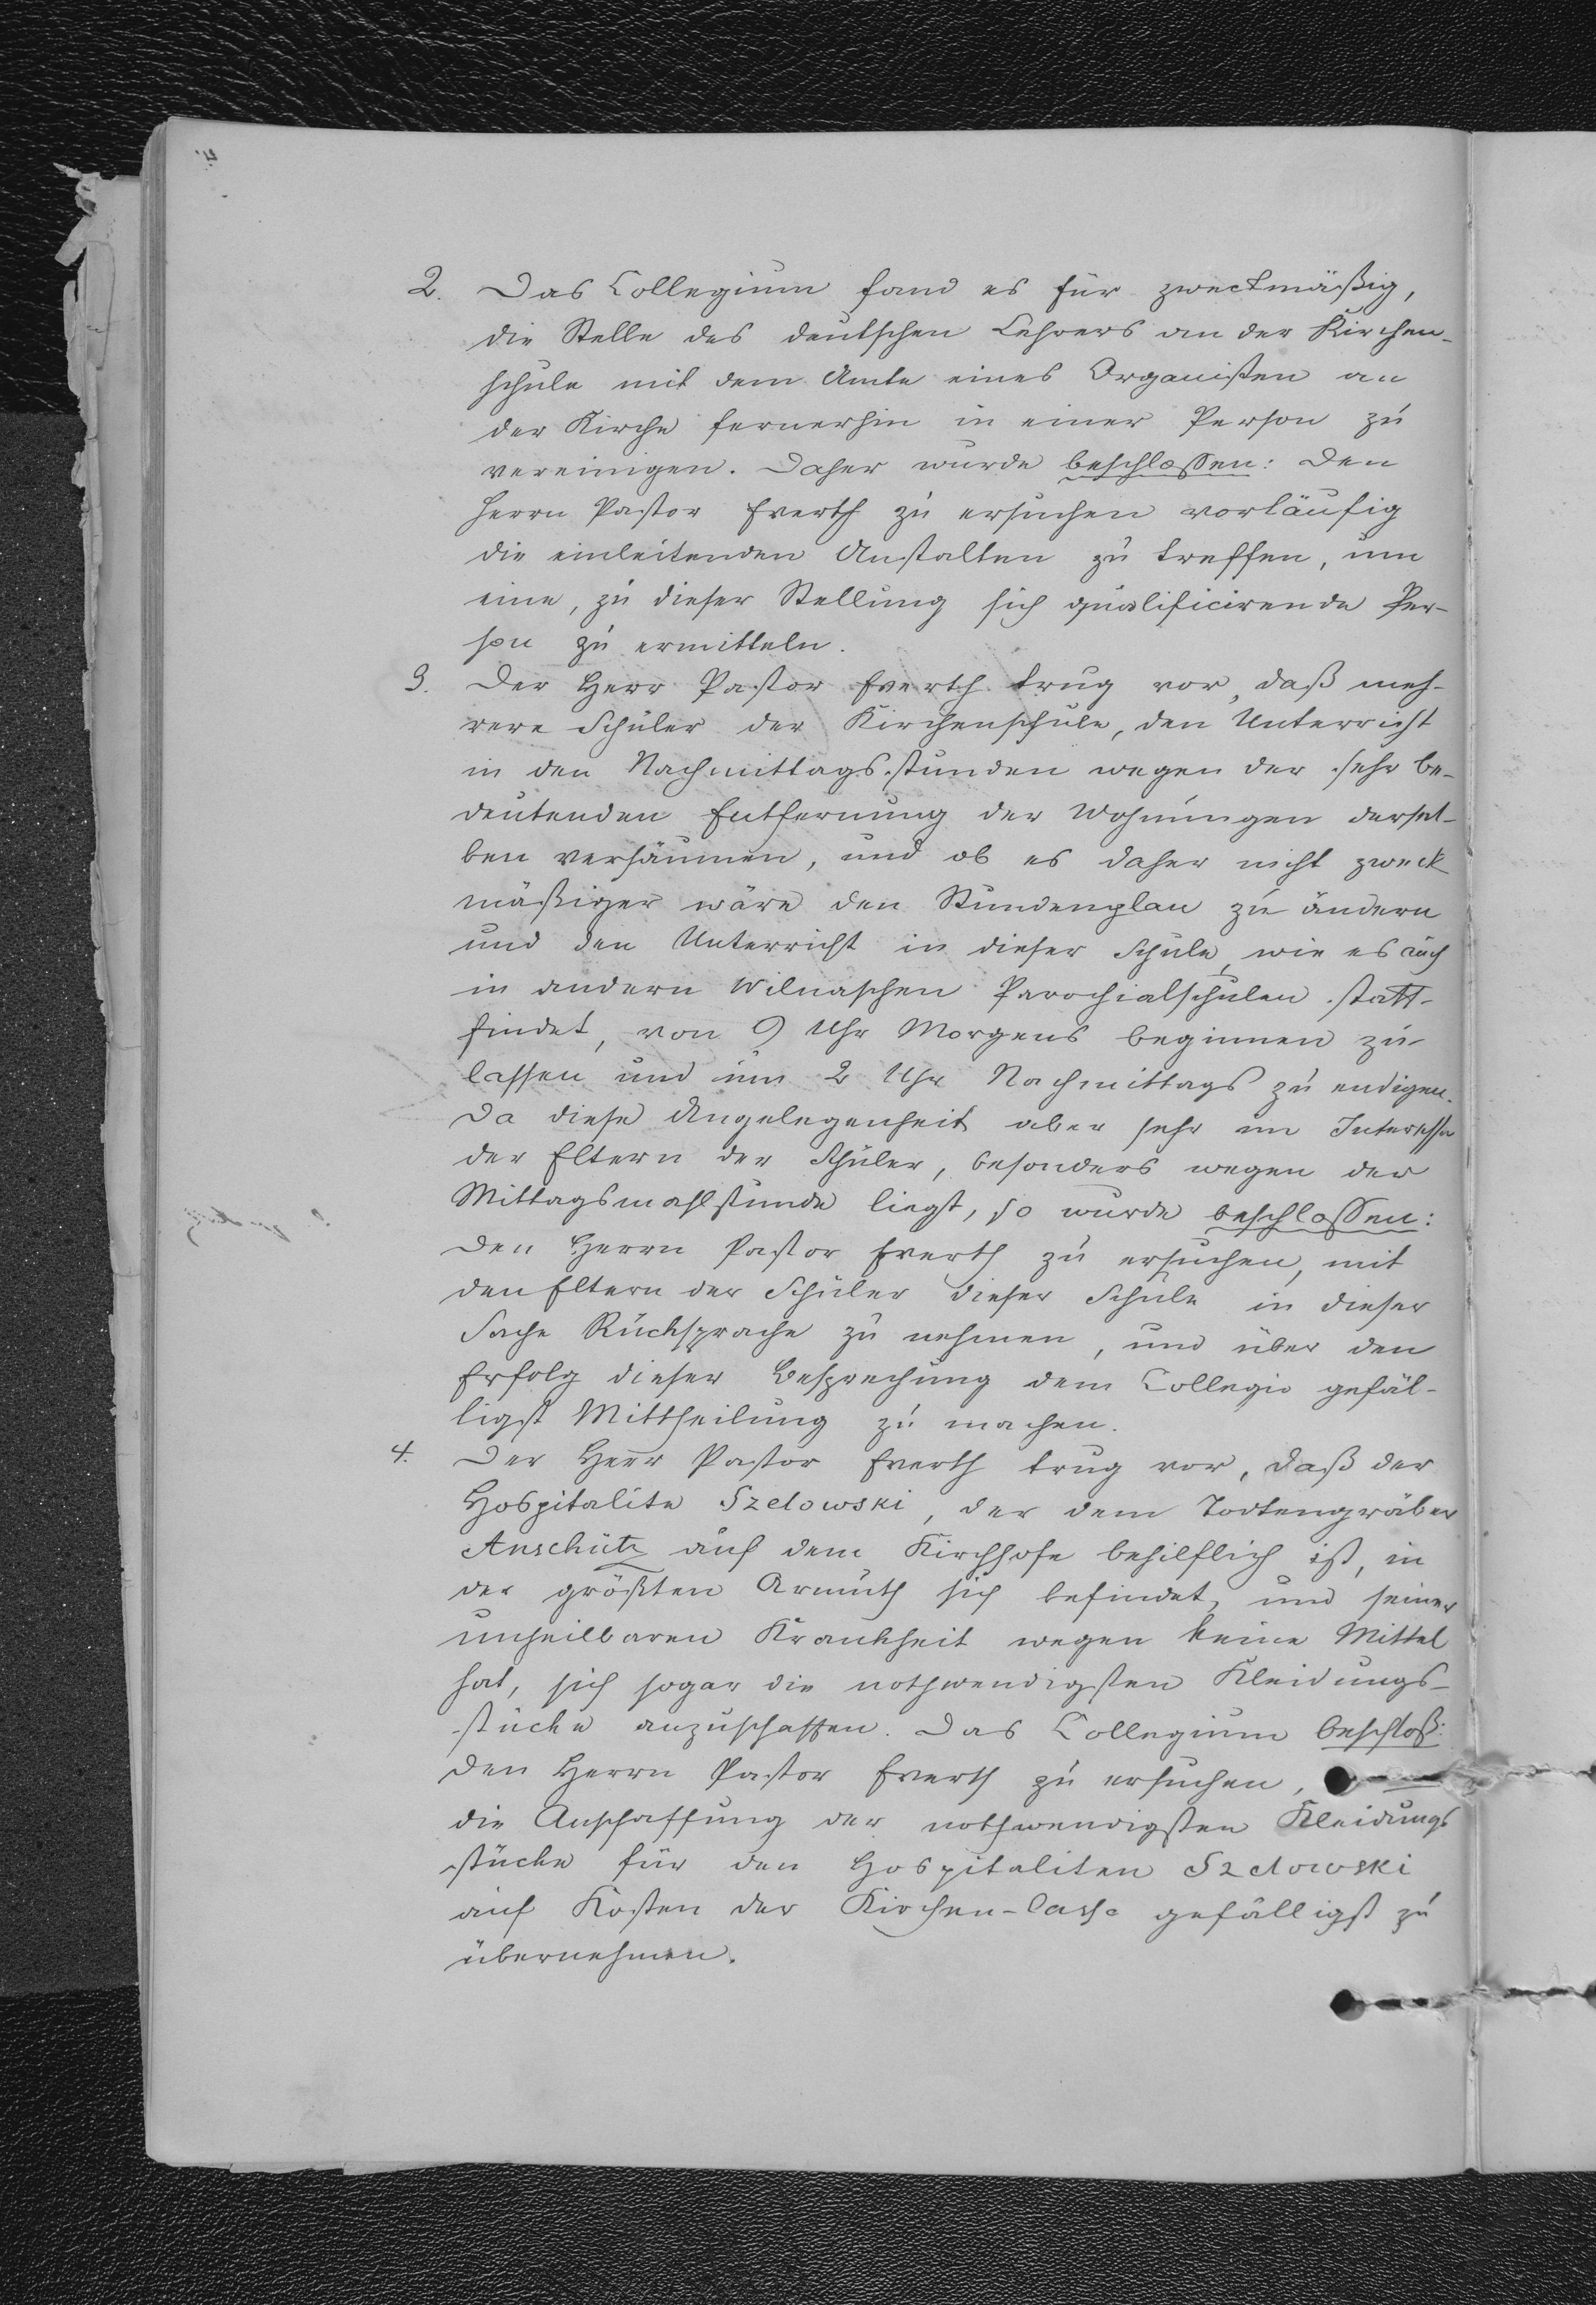 2. Das Collegium fand es für zweckmäßig,
die Stelle des deutschen Lehrers an der Kirchen-
schule mit dem Amte eines Organisten an
der Kirche fernerhin in einer Person zu
vereinigen. Daher wurde beschlossen: den
Herrn Pastor Everth zu ersuchen vorläufig
die einleitenden Anstalten zu treffen, um
eine, zu dieser Stellung sich qualificirende Per-
son zu ermitteln.
3. Der Herr Pastor Everth trug vor, daß meh-
rere Schüler der Kirchenschule, den Unterricht
in den Nachmittagsstunden wegen der sehr be-
deutenden Entfernung der Wohnungen dersel-
ben versäumen, und ob es daher nicht zweck
mäßiger wäre den Stundenplan zu ändern
und den Unterricht in dieser Schule, wie es auch
in andern Wilnaschen Parochialschulen statt-
findet, von 9 Uhr Morgens beginnen zu
lassen und um 2 Uhr Nachmittags zu endigen.
Da diese Angelegenheit aber sehr im Interesse
der Eltern der Schüler, besonders wegen der
Mittagsmahlstunde liegt, so wurde beschlossen:
den Herrn Pastor Everth zu ersuchen, mit
den Eltern der Schüler dieser Schule in dieser
Sache Rücksprache zu nehmen, und über den
Erfolg dieser Besprechung dem Collegio gefäl-
ligst Mittheilung zu machen.
4. Der Herr Pastor Everth trug vor, daß der
Hospitalite Szelowski, der dem Todtengräber
Anschütz auf dem Kirchhofe behilflich ist, in
der größten Armuth sich befindet, und seiner
unheilbaren Krankheit wegen keine Mittel
hat, sich sogar die nothwendigsten Kleidungs-
stücke anzuschaffen. Das Collegium beschloß:
den Herrn Pastor Everth zu ersuchen,
die Anschaffung der nothwendigsten Kleidungs
stücke für den Hospitaliten Szelowski
auf Kosten der Kirchen-Casse gefälligst zu
übernehmen.